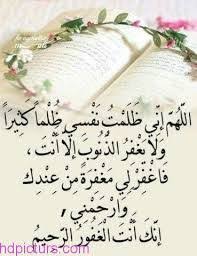 اللَّهُمَّ إِنِّي ظَلَمْتُ نَفْسِي ظُلْمًا كَثِيرًا
وَلَا يَغْفِرُ الذُّنُوبَ إِلَّا أَنْتَ ,
فَاغْفِرْ لِي مَغْفِرَةً مِنْ عِنْدِكَ
وَارْحَمْنِي ,
إِنَّكَ أَنْتَ الْغَفُورُ الرَّحِيمُ
hdpicturs.com